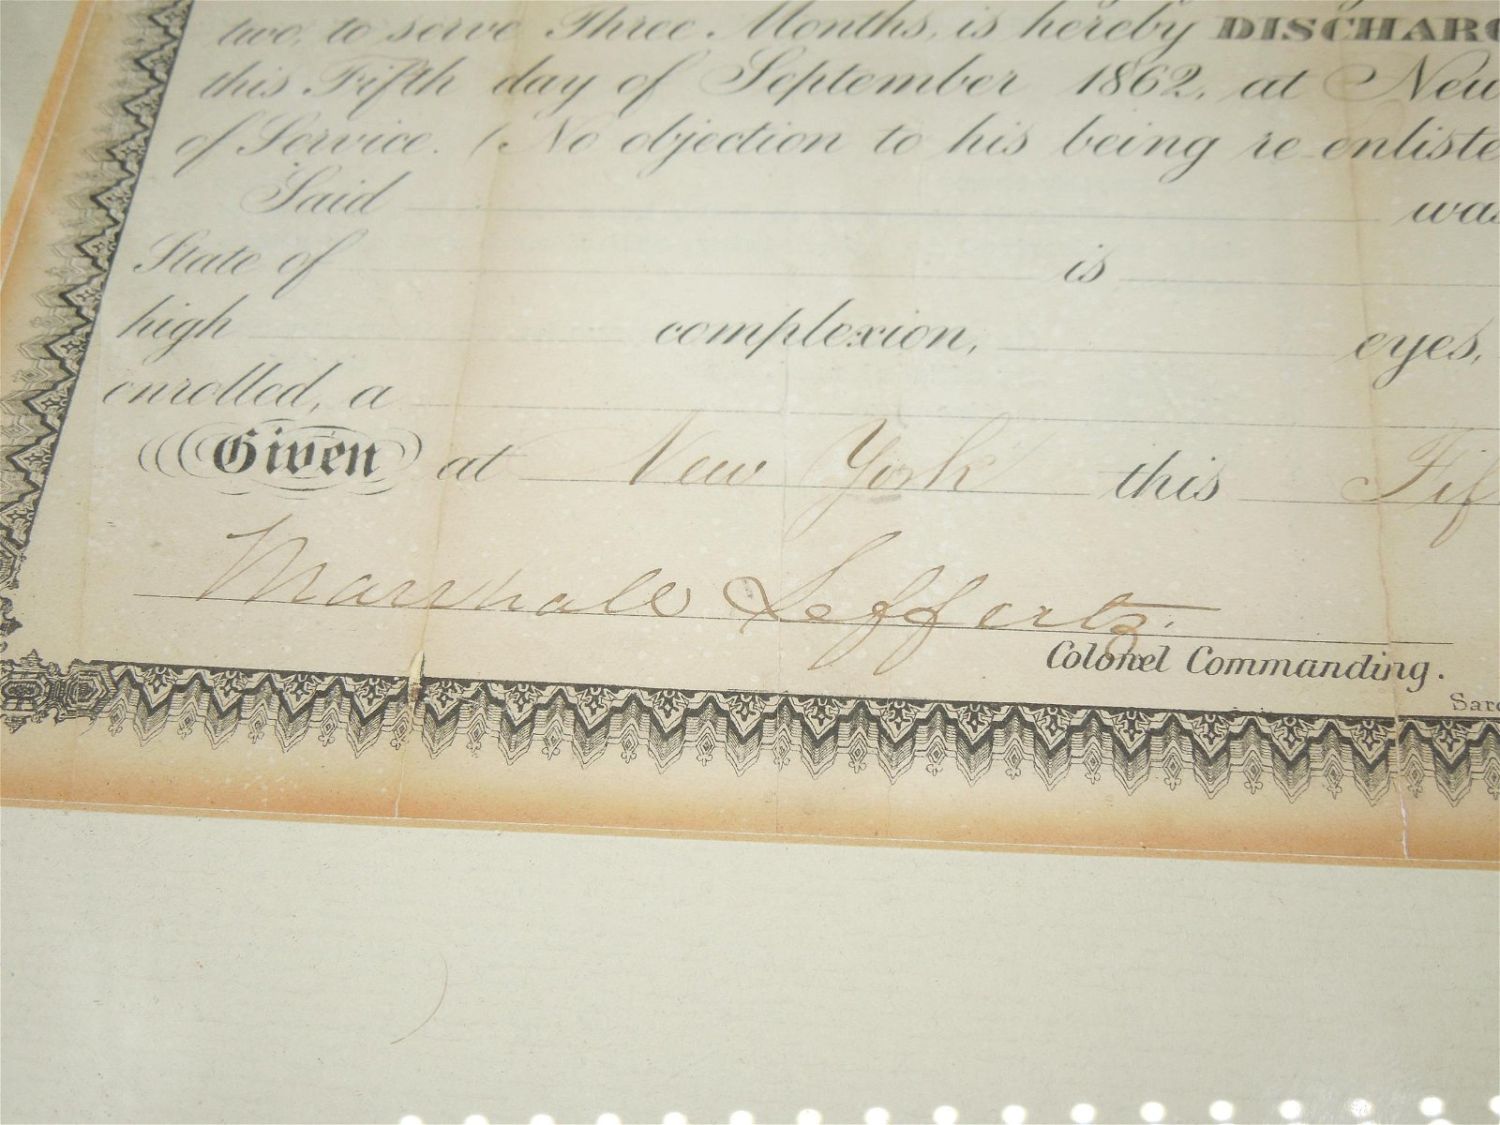 two, to serve Three Months, is hereby DISCHARG
this Fifth day of September 1862, at New
of Service. (No objection to his being re-enliste
Said was
State of is
high complexion, eyes,
enrolled, a
Given at New York this Fif
Marshall Lefferts
Colonel Commanding.
Sar